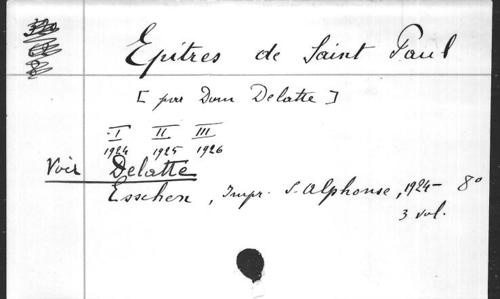 Epitres de Saint Paul
[ par Dom Delatte ]
I II III
1924 1925 1926
Voir Delatte
Esschen, Impr. S. Alphonse, 1924- 8°
3 vol.